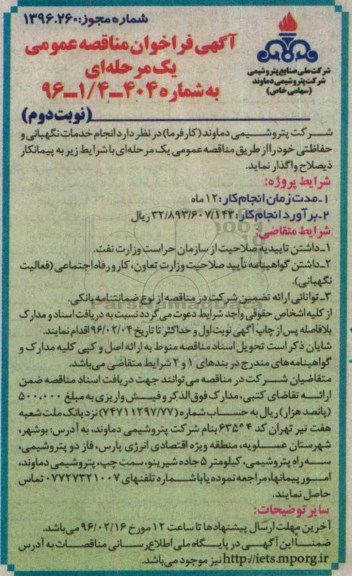 شماره مجوز: ۱۳۹۶.۲۶۰
شرکت ملی صنایع پتروشیمی
شرکت پتروشیمی دماوند
(سهامی خاص)
آگهی فراخوان مناقصه عمومی
یک مرحله‌ای
به شماره ۴۰۴-۱/۴-۹۶
(نوبت دوم)
شرکت پتروشیمی دماوند (کارفرما) در نظر دارد انجام خدمات نگهبانی و
حفاظتی خود را از طریق مناقصه عمومی یک مرحله‌ای با شرایط زیر به پیمانکار
ذیصلاح واگذار نماید.
شرایط پروژه:
۱-مدت زمان انجام کار: ۱۲ ماه
۲-برآورد انجام کار: ۳۲/۸۹۳/۶۰۷/۱۴۳ ریال
شرایط متقاضی:
۱-داشتن تاییدیه صلاحیت از سازمان حراست وزارت نفت.
۲-داشتن گواهینامه تأیید صلاحیت وزارت تعاون، کار و رفاه اجتماعی (فعالیت
نگهبانی).
۳-توانائی ارائه تضمین شرکت در مناقصه از نوع ضمانتنامه بانکی.
از کلیه اشخاص حقوقی واجد شرایط دعوت می گردد نسبت به دریافت اسناد و مدارک
بلافاصله پس از چاپ آگهی نوبت اول و حداکثر تا تاریخ ۹۶/۰۲/۰۴ اقدام نمایند.
شایان ذکر است تحویل اسناد مناقصه منوط به ارائه اصل و کپی کلیه مدارک و
گواهینامه های مندرج در بندهای ۱ و ۲ شرایط متقاضی می‌باشد.
متقاضیان شرکت در مناقصه می توانند جهت دریافت اسناد مناقصه ضمن
ارائه تقاضای کتبی، مدارک فوق الذکر و فیش واریزی به مبلغ ۵۰۰،۰۰۰
(پانصد هزار) ریال به حساب شماره (۷۴۷۱۱۲۹۷/۷۷) نزد بانک ملت شعبه
هفت تیر تهران کد ۶۳۵۶۴ بنام شرکت پتروشیمی دماوند، به آدرس: بوشهر،
شهرستان عسلویه، منطقه ویژه اقتصادی انرژی پارس، فاز دو پتروشیمی،
سه راه پتروشیمی، کیلومتر ۵ جاده شیرینو، سمت چپ، پتروشیمی دماوند،
امور پیمانها، مراجعه نموده یا با شماره تلفنهای ۰۷۷۲۷۳۲۱۰۰۷ تماس
حاصل نمایند.
سایر توضیحات:
آخرین مهلت ارسال پیشنهادها تا ساعت ۱۲ مورخ ۹۶/۰۲/۱۶ می‌باشد.
ضمناً این آگهی در پایگاه ملی اطلاع رسانی مناقصات به آدرس
http://iets.mporg.ir نیز موجود می‌باشد.